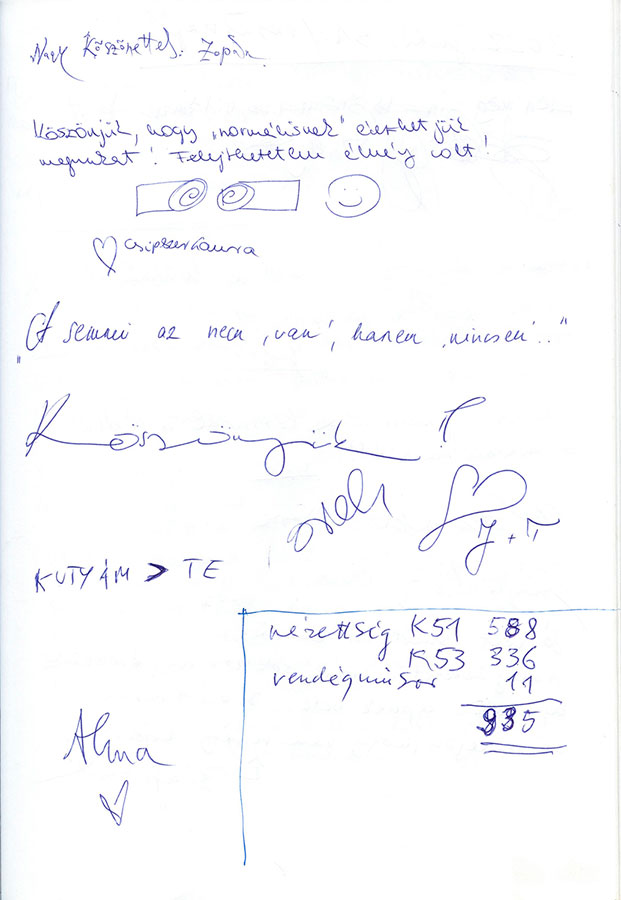 Nagy Köszönettel:
Köszönjük, hogy „normálisnak” érezhetjük
magunkat! Felejthetetlen élmény volt!
csipszerlaura
„A semmi az nem ‚van’, hanem ‚nincsen’..”
Köszönjük!
J + T
KUTYÁM > TE
nézettség K51 588
K53 336
vendégműsor 11
935
Alma